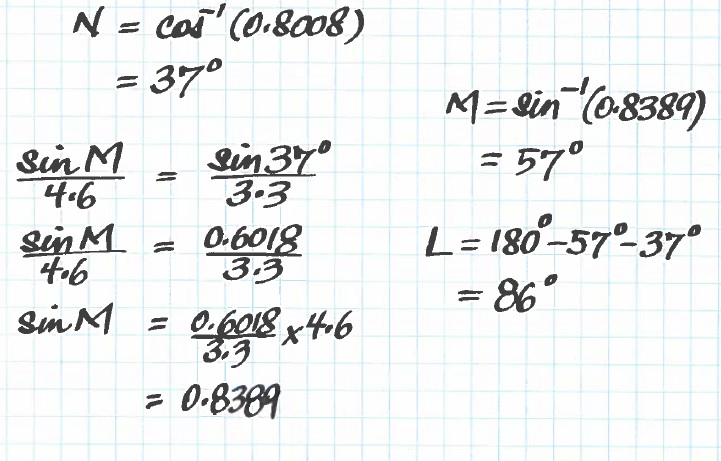 N = cos⁻¹(0.8008)
= 37°
sin M / 4.6 = sin 37° / 3.3
sin M / 4.6 = 0.6018 / 3.3
sin M = 0.6018 / 3.3 x 4.6
= 0.8389
M = sin⁻¹(0.8389)
= 57°
L = 180° - 57° - 37°
= 86°